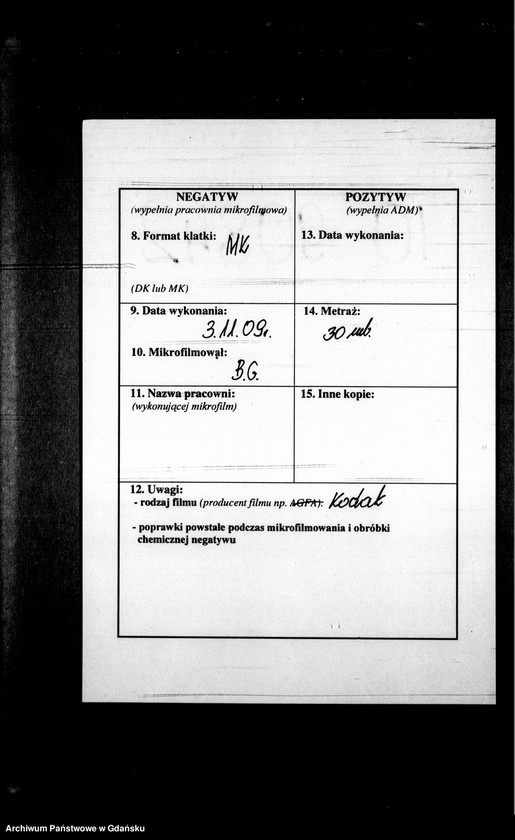 NEGATYW
(wypełnia pracownia mikrofilmowa)
8. Format klatki: MK
(DK lub MK)
9. Data wykonania:
3.11.09r.
10. Mikrofilmował:
B.G.
11. Nazwa pracowni:
(wykonującej mikrofilm)
POZYTYW
(wypełnia ADM)
13. Data wykonania:
14. Metraż:
30 mb.
15. Inne kopie:
12. Uwagi:
- rodzaj filmu (producent filmu np. AGFA): Kodak
- poprawki powstałe podczas mikrofilmowania i obróbki
chemicznej negatywu
Archiwum Państwowe w Gdańsku